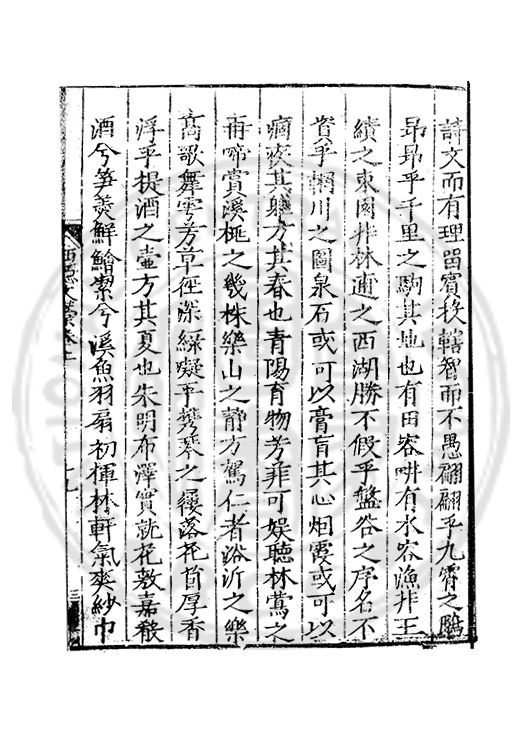 詩文而有理留賓投轄智而不愚翩翩乎九霄之鵬
昂昂乎千里之駒其地也有田容畊有水容漁拌王
績之東園拌林逋之西湖勝不假乎盤谷之序名不
資乎輞川之圖泉石或可以膏肓其心烟霞或可以
痼疾其軀方其春也青陽育物芳菲可娱聴林鶯之
再啼賞溪桃之幾株樂山之静方駕仁者浴沂之樂
高歌舞雩芳草徑深緑凝乎携琴之履落花首厚香
浮乎提酒之壷方其夏也朱明布澤實就花敷嘉穀
酒兮笋羮鮮鱠潔兮溪魚羽扇初揮林軒氣爽紗巾